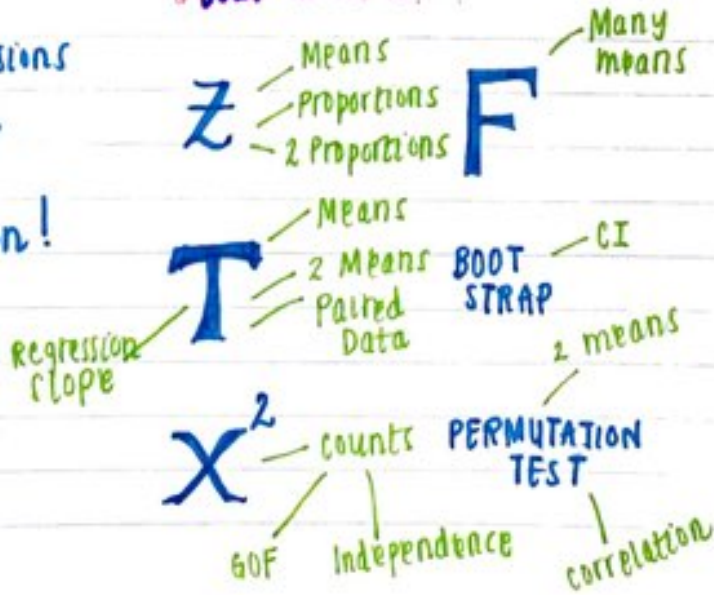 sions
n!
Z
Means
Proportions
2 Proportions
F
Many
means
T
Means
2 Means
Paired
Data
Regression
slope
BOOT
STRAP
CI
X²
counts
GOF
Independence
PERMUTATION
TEST
2 means
correlation